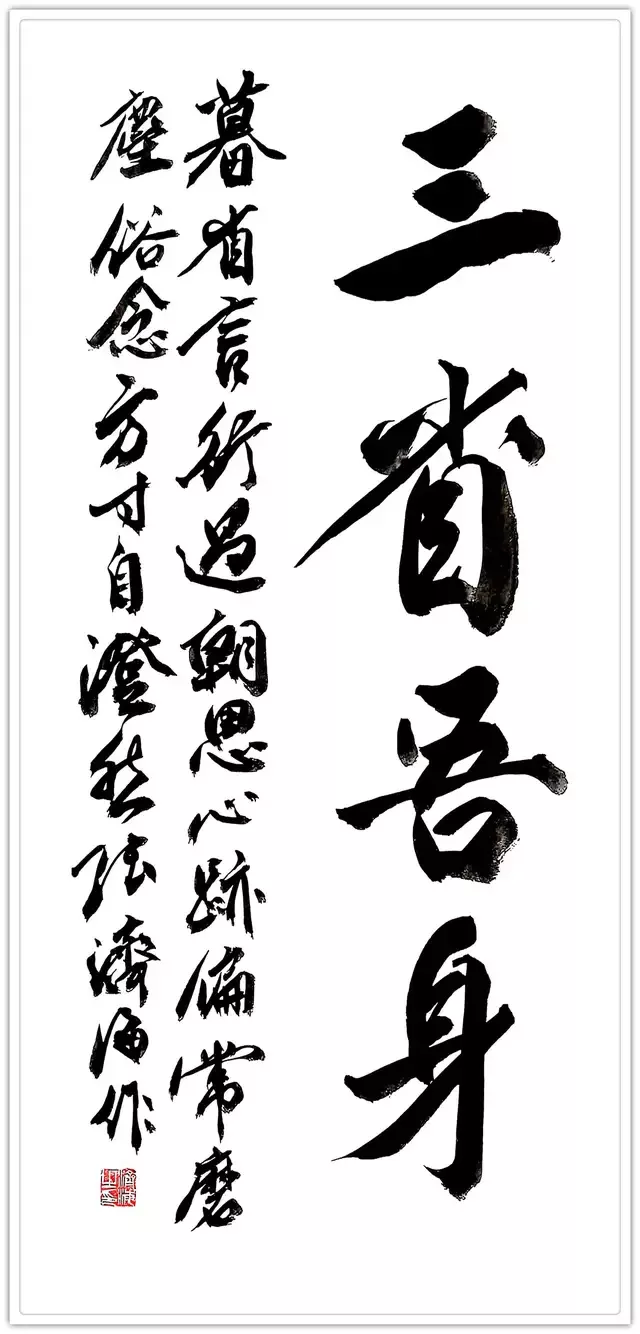 三省吾身
暮省言行過朝思心跡偏常磨
塵俗念方寸自澄然張濟海作